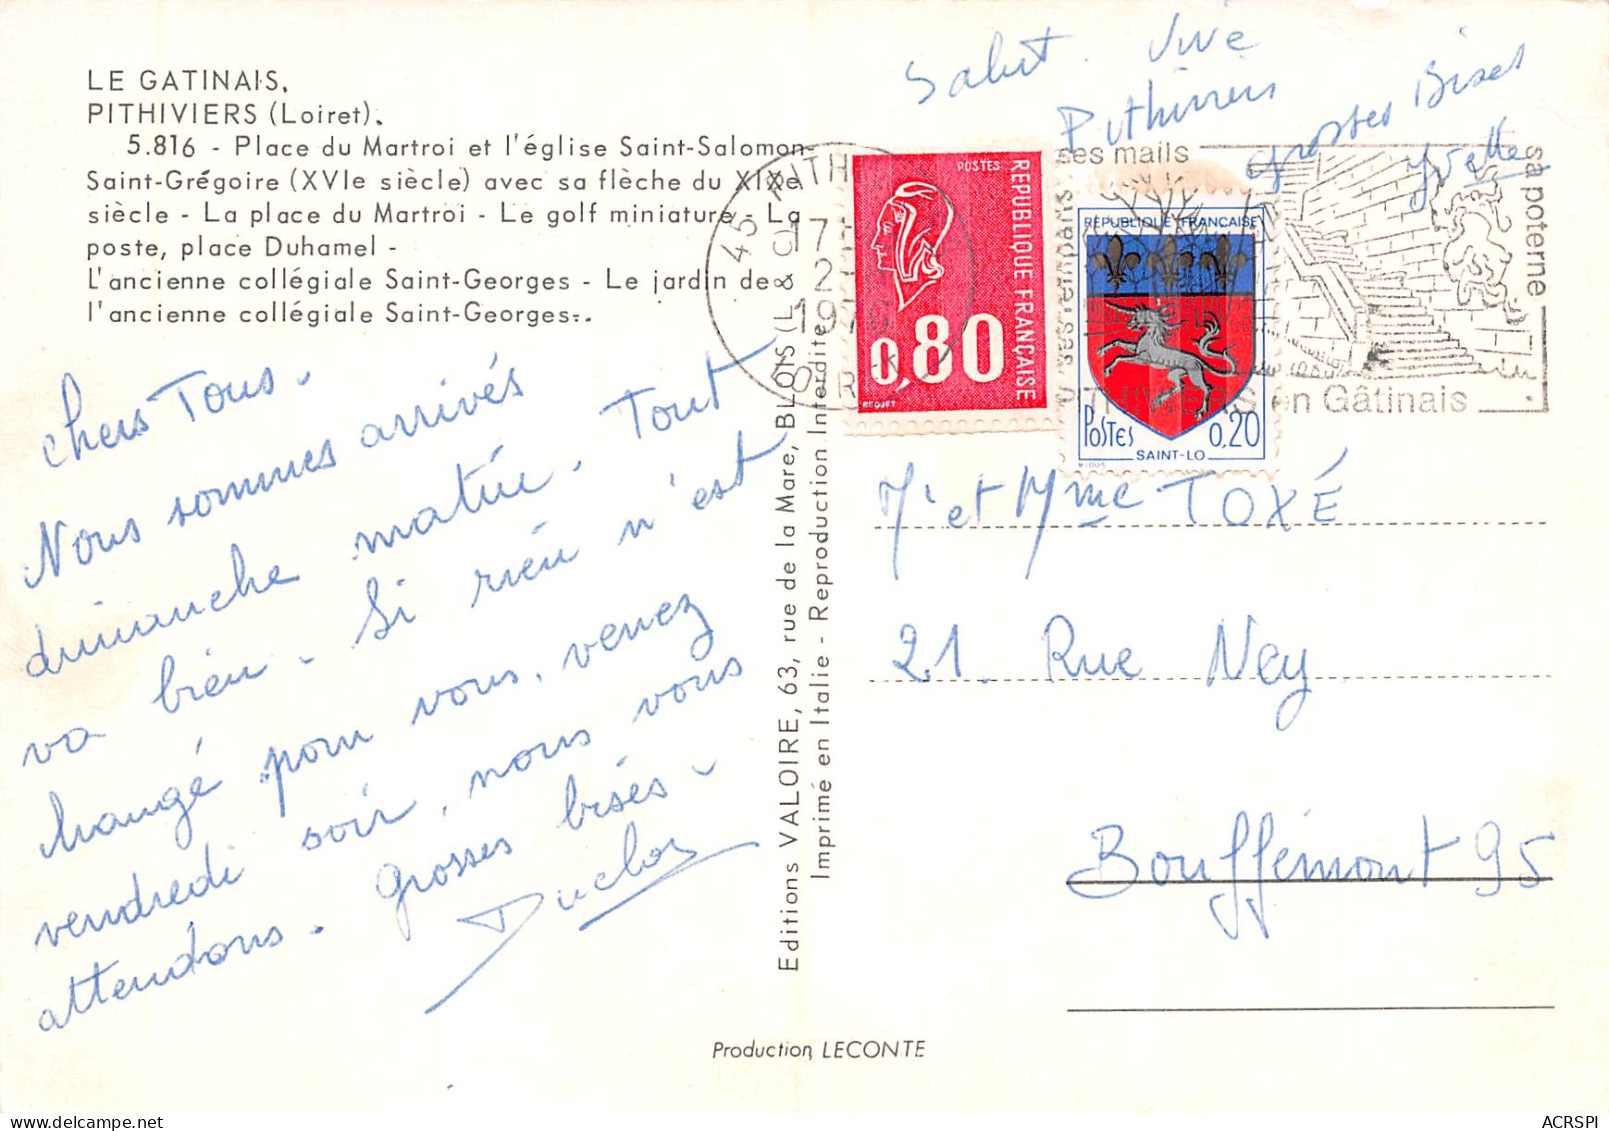 LE GATINAIS.
PITHIVIERS (Loiret).
5.816 - Place du Martroi et l'église Saint-Salomon-
Saint-Grégoire (XVIe siècle) avec sa flèche du XIXe
siècle - La place du Martroi - Le golf miniature - La
poste, place Duhamel -
L'ancienne collégiale Saint-Georges - Le jardin de
l'ancienne collégiale Saint-Georges.
chers Tous.
Nous sommes arrivés
dimanche matin. Tout
va bien. Si rien n'est
changé pour vous, venez
vendredi soir, nous vous
attendons. Grosses bises
Duclos
Editions VALOIRE, 63, rue de la Mare, BLOIS (L. & C.)
Imprimé en Italie - Reproduction Interdite
Production LECONTE
Salut. Vive
Pithiviers
grosses Bises
Yvette
45 PITH
17
2
1976
LOIRET
POSTES
REPUBLIQUE FRANÇAISE
0,80
BEQUET
REPUBLIQUE FRANÇAISE
POSTES 0,20
SAINT-LO
ses mails
ses remparts
sa poterne
PITHIVIERS en Gâtinais
Mr et Mme TOXÉ
21. Rue Ney
Bouffémont 95
ACRSPI